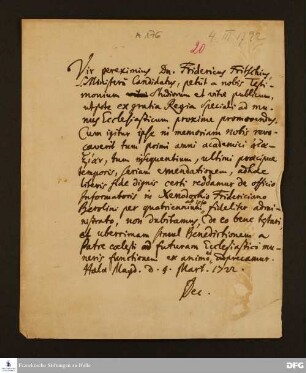 A 176
4. III 1722
20
Vir pereximius Dn. Fridericus Fritschius,
S. Ministerii Candidatus, petiit a nobis testi-
monium studiorum et vitæ publicum
utpote ex gratia Regia speciali ad mu-
nus Ecclesiasticum proxime promovendus.
Cum igitur ipse in memoriam nobis revo-
caverit tum primi anni academici
tum insequentium, ultimi præcipue
temporis, seriam emendationem,
literis fide dignis certi reddamur de officio
Informatoris in Xenodochio Fridericiano
Berolin. per quatriennium, fideliter admi-
nistrato, non dubitamus, de eo bene testari
et uberrimam simul Benedictionem a
Patre coelesti ad futuram Ecclesiastici mu-
neris functionem ex animo deprecamur.
Halæ Magd. d. 9. Mart. 1722.
Dec.
Franckesche Stiftungen zu Halle
DFG